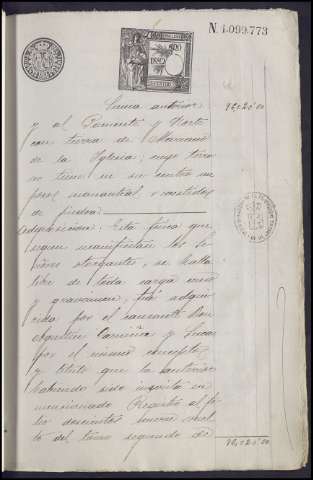 N. 4.099,773
Suma anterior
y al Poniente y Norte
con tierra de Mariano
de la Iglesia; cuyo terre
no tiene en su centro un
pozo manantial
de piedra
Adquisición: Esta finca que
segun manifiestan los se
ñores otorgantes, se halla
libre de toda carga
y gravamen, fué adqui
rida por el causante Don
Agustin y
por el mismo concepto
y titulo que la anterior
habiendo sido inscrita en
mencionado Registro al fo
lio doscientos nueve vuel
to del tomo segundo de